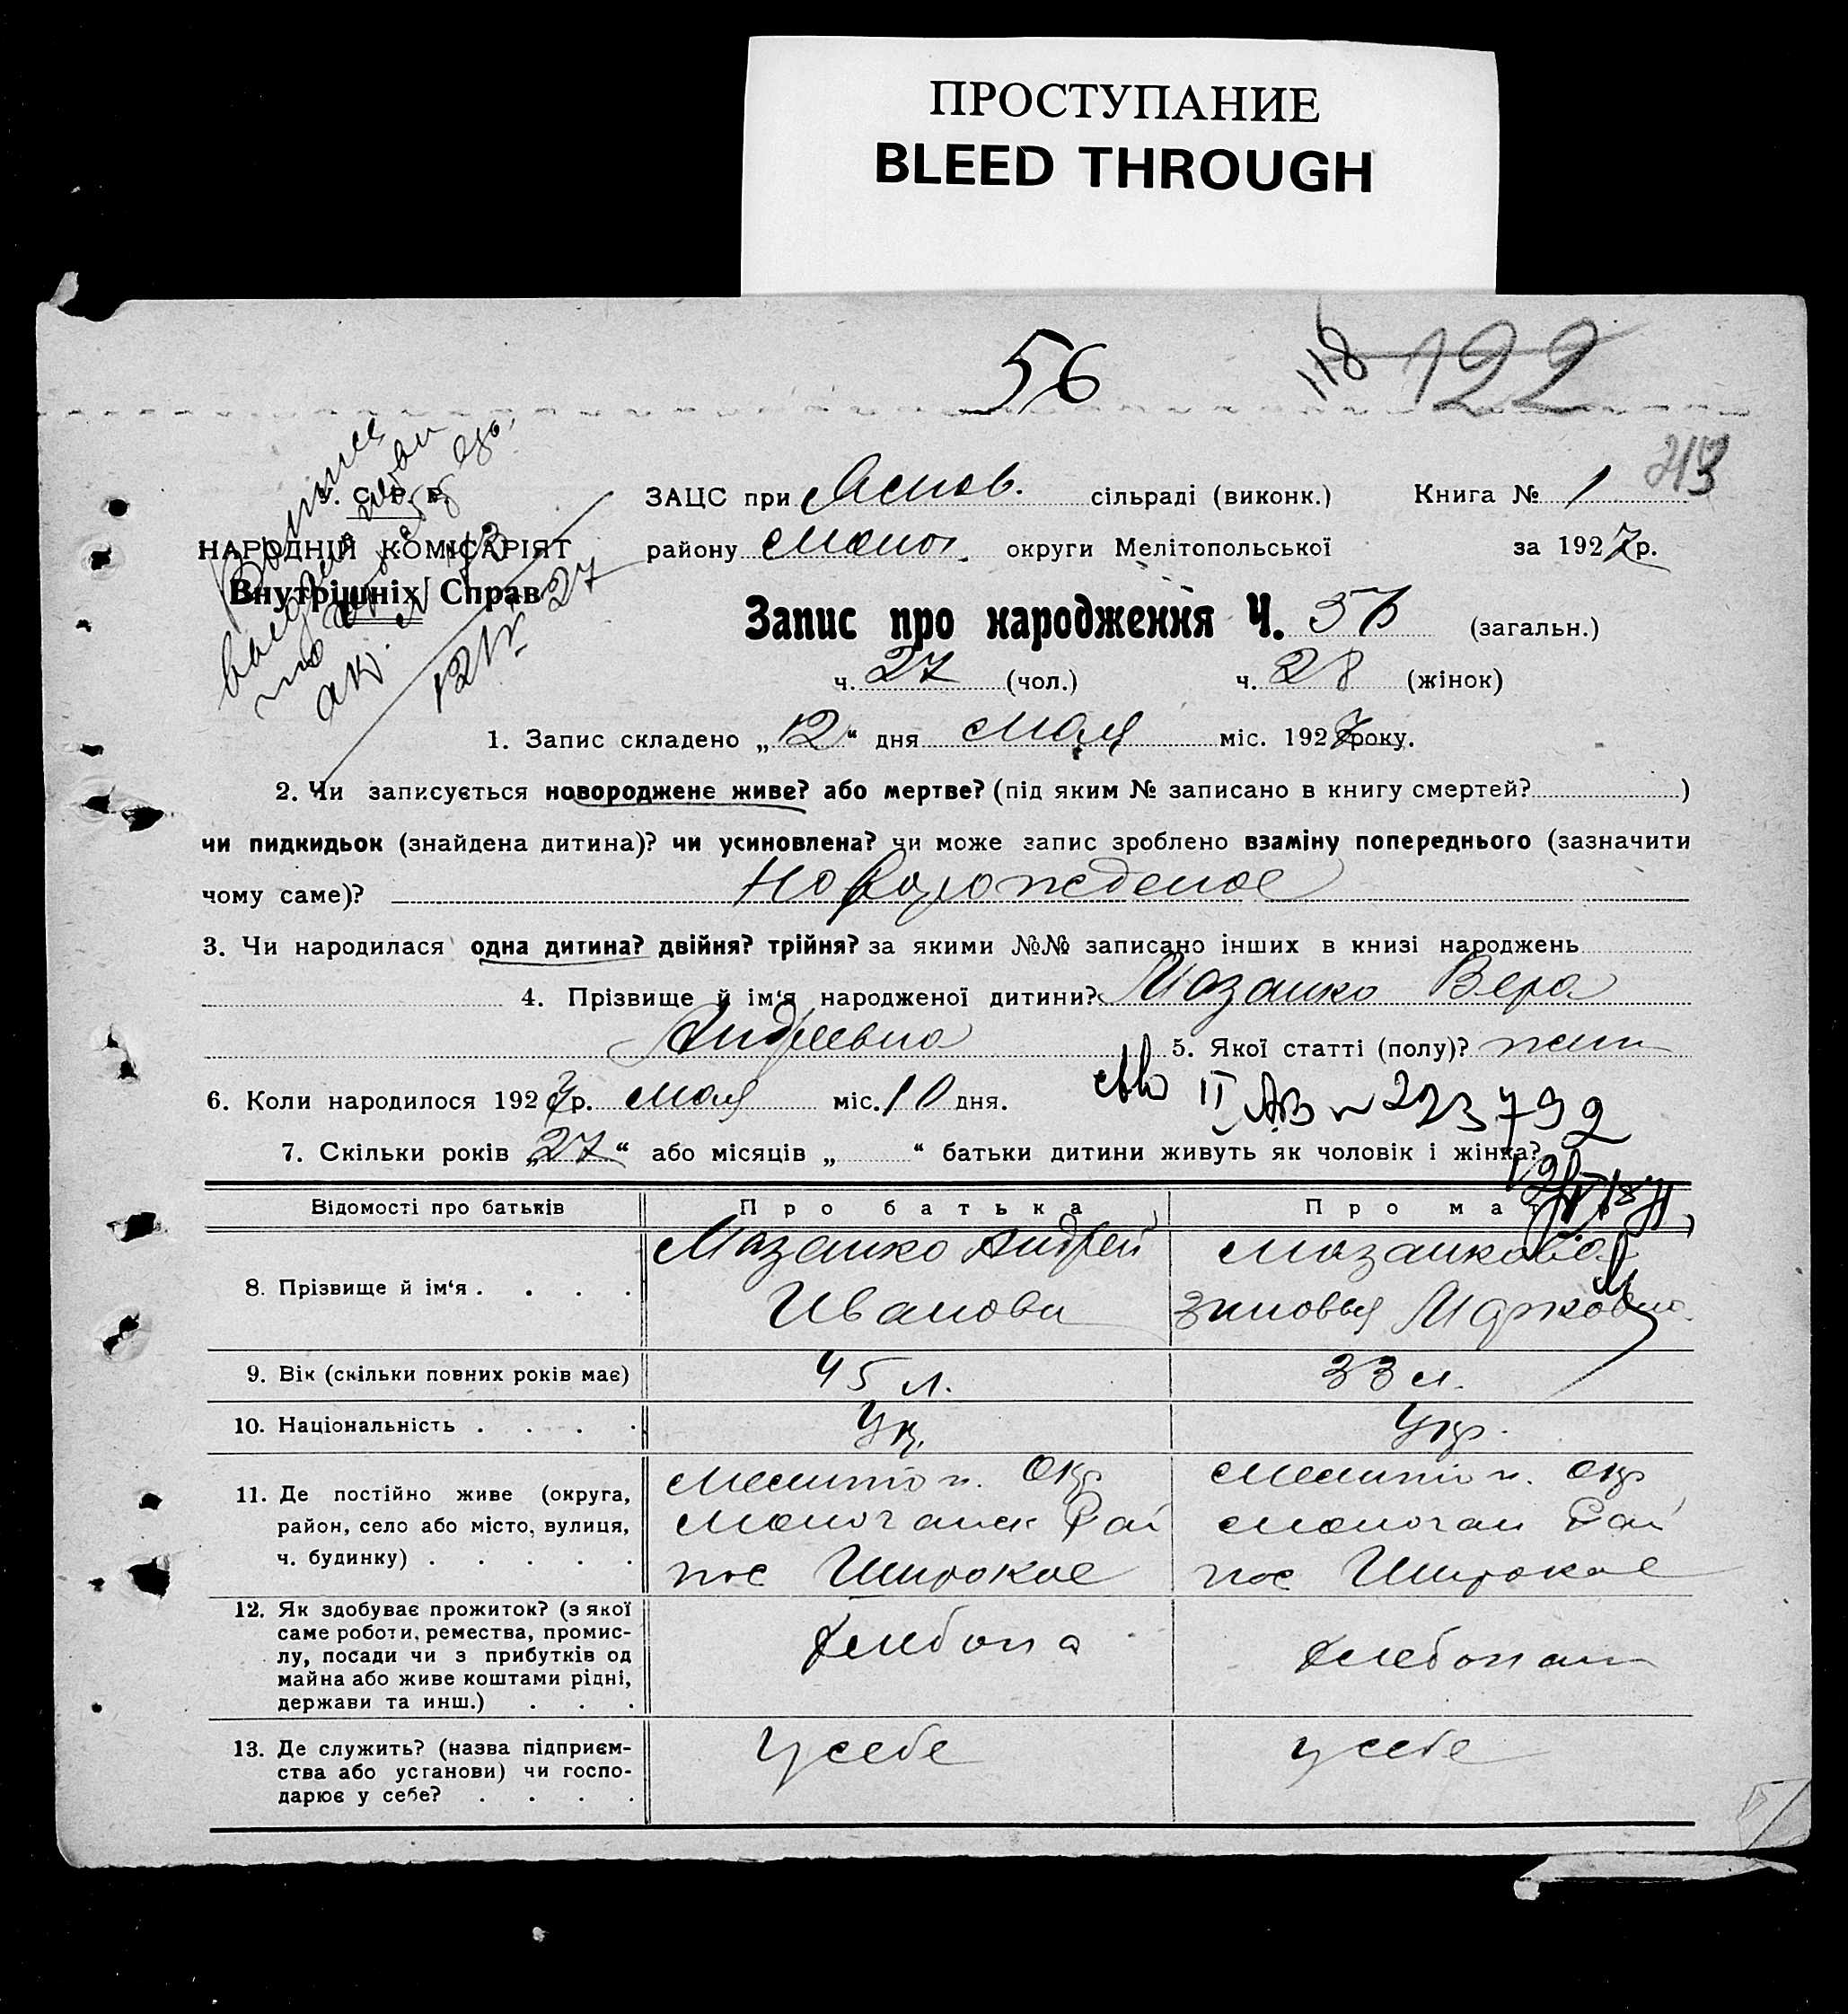 ПРОСТУПАНИЕ
BLEED THROUGH
56
118 122
213
У. С. Р. Р.
НАРОДНІЙ КОМІСАРІЯТ
Внутрішніх Справ
12/V 27
ЗАЦС при сільраді (виконк.) Книга № 1
району округи Мелітопольської за 1927 р.
Запис про народження Ч. (загальн.)
ч. 27 (чол.) ч. 28 (жінок)
1. Запис складено „12“ дня мая міс. 1927 року.
2. Чи записується новороджене живе? або мертве? (під яким № записано в книгу смертей? )
чи пидкидьок (знайдена дитина)? чи усиновлена? чи може запис зроблено взаміну попереднього (зазначити
чому саме)? Новорожденое
3. Чи народилася одна дитина? двійня? трійня? за якими №№ записано інших в книзі народжень
4. Прізвище й ім‘я народженої дитини? Мозашко Вера
Андреевна 5. Якої статті (полу)? жен
6. Коли народилося 1927 р. мая міс. 10 дня.
II АВ № 223792
7. Скільки років „27“ або місяців „ “ батьки дитини живуть як чоловік і жінка?
Відомості про батьків Про батька Про матір
8. Прізвище й ім‘я . . . . Андрей
Иванови Марковна
9. Вік (скільки повних років має) 45 л. 33 л.
10. Національність . . . . Ук. Укр.
11. Де постійно живе (округа, Мелитоп. Окр Мелитоп. Окр
район, село або місто, вулиця, Рай Рай
ч. будинку) . . . . . пос Широкое пос Широкое
12. Як здобуває прожиток? (з якої
саме роботи, ремества, промис-
лу, посади чи з прибутків од
майна або живе коштами рідні,
держави та инш.) . . .
хлебопа хлебопаш
13. Де служить? (назва підприєм-
ства або установи) чи госпо-
дарює у себе? . . . .
у себе у себе